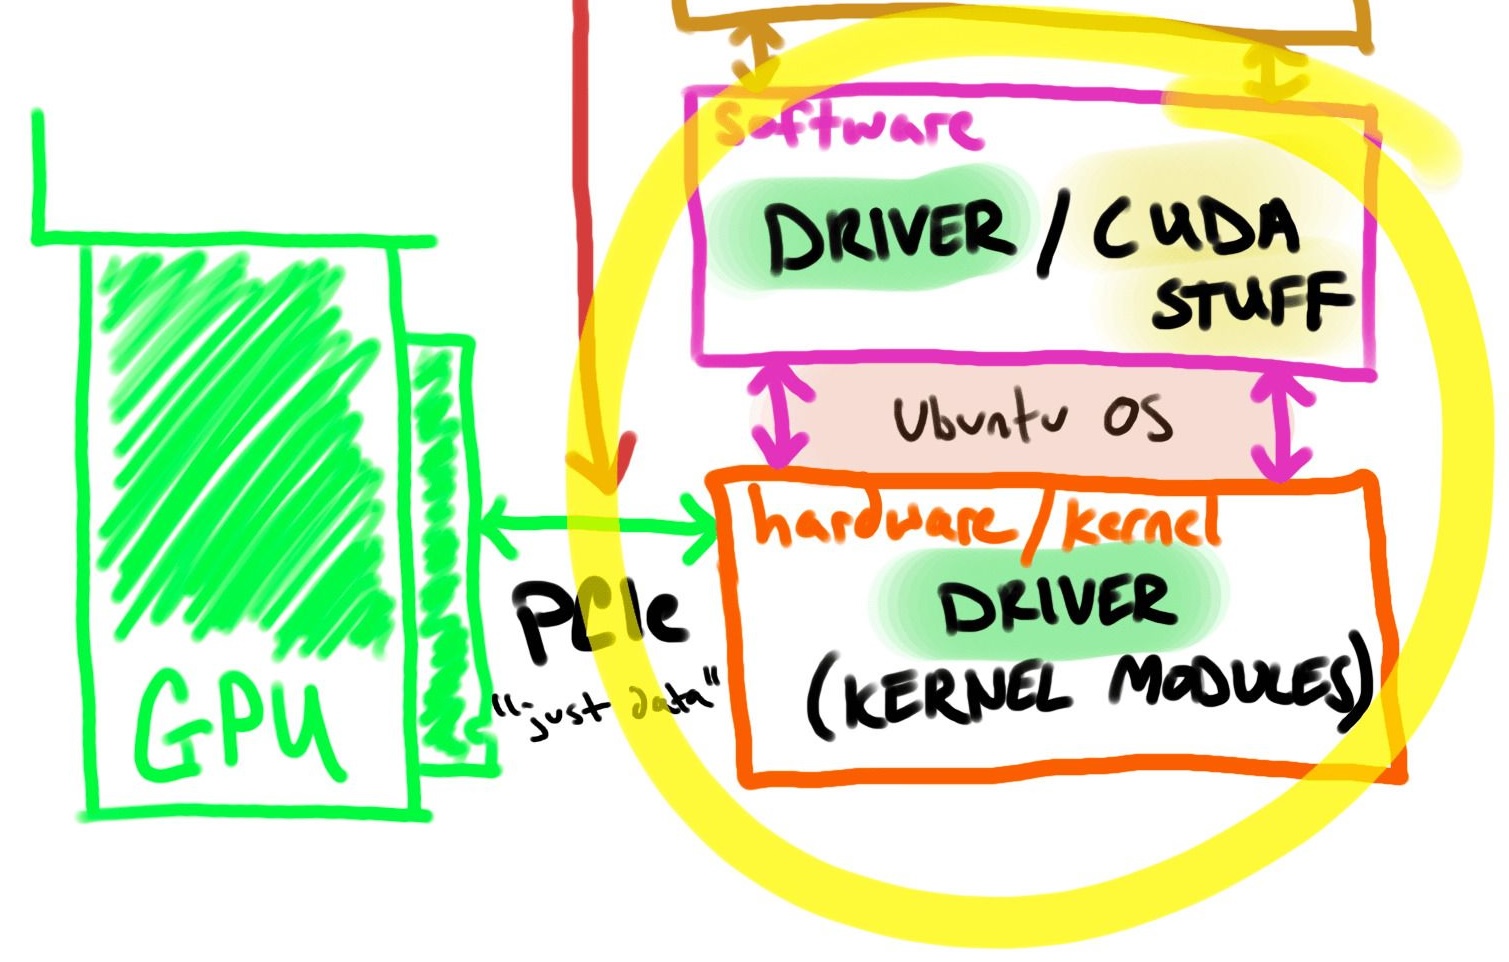 Software
DRIVER / CUDA
STUFF
Ubuntu OS
hardware/kernel
DRIVER
(KERNEL MODULES)
PCIe
"just data"
GPU